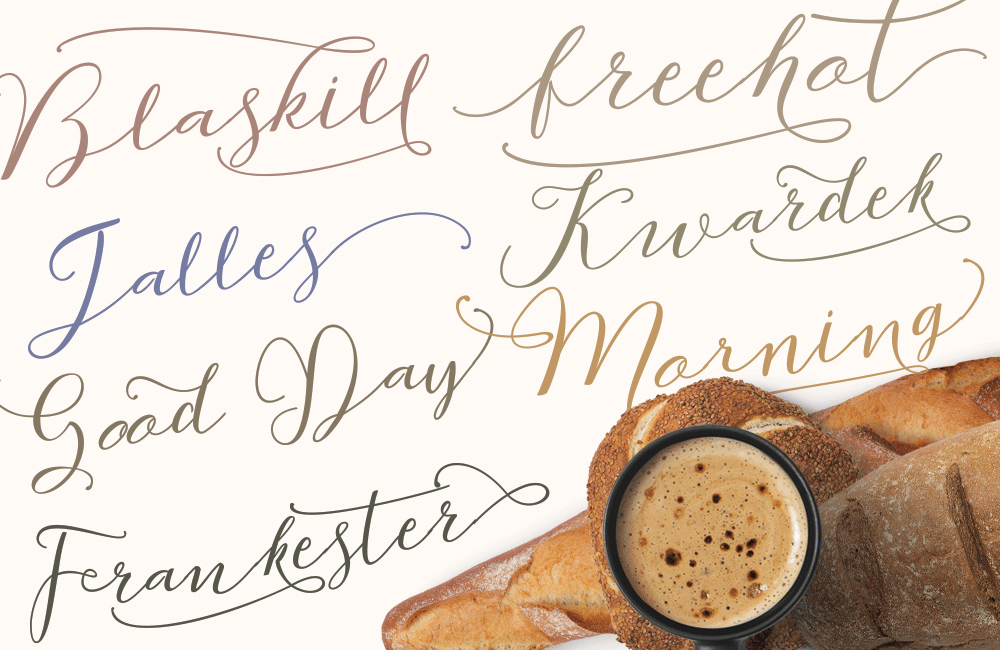 Blaskill
freehot
Jalles
Kwardek
Good Day
Morning
Ferankester